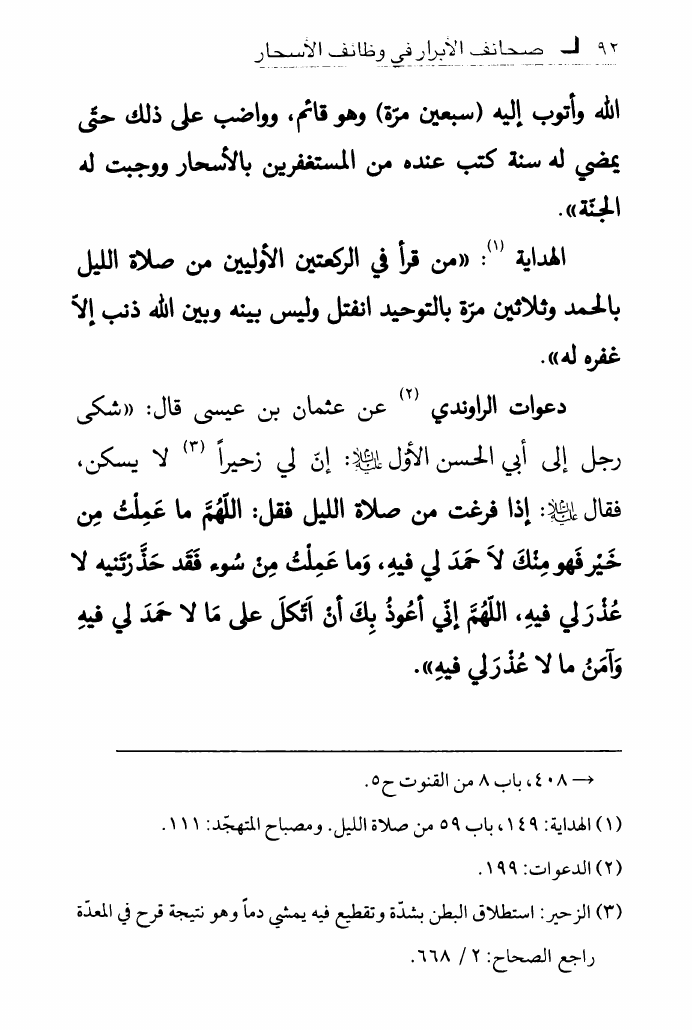 ٩٢ صحائف الأبرار في وظائف الأسحار
الله وأتوب إليه (سبعين مرّة) وهو قائم، وواضب على ذلك حتّى
يمضي له سنة كتب عنده من المستغفرين بالأسحار ووجبت له
الجنّة».
الهداية (١): «من قرأ في الركعتين الأوليين من صلاة الليل
بالحمد وثلاثين مرّة بالتوحيد انفتل وليس بينه وبين الله ذنب إلاّ
غفره له».
دعوات الراوندي (٢) عن عثمان بن عيسى قال: «شكى
رجل إلى أبي الحسن الأوّل عليه السلام: إنّ لي زحيراً (٣) لا يسكن،
فقال عليه السلام: إذا فرغت من صلاة الليل فقل: اللّهُمَّ ما عَمِلْتُ مِن
خَيْر فَهو مِنْكَ لاَ حَمَدَ لي فيهِ، وَما عَمِلْتُ مِنْ سُوء فَقَد حَذَّرْتَنيه لا
عُذْرَ لي فيهِ، اللّهُمَّ إنّي أعُوذُ بِكَ أنْ اَتّكلَ على مَا لا حَمَدَ لي فيهِ
وَآمَنُ ما لا عُذْرَ لي فيهِ».
→ ٤٠٨، باب ٨ من القنوت ح٥.
(١) الهداية: ١٤٩، باب ٥٩ من صلاة الليل. ومصباح المتهجّد: ١١١.
(٢) الدعوات: ١٩٩.
(٣) الزحير: استطلاق البطن بشدّة وتقطيع فيه يمشي دماً وهو نتيجة قرح في المعدّة
راجع الصحاح: ٢ / ٦٦٨.